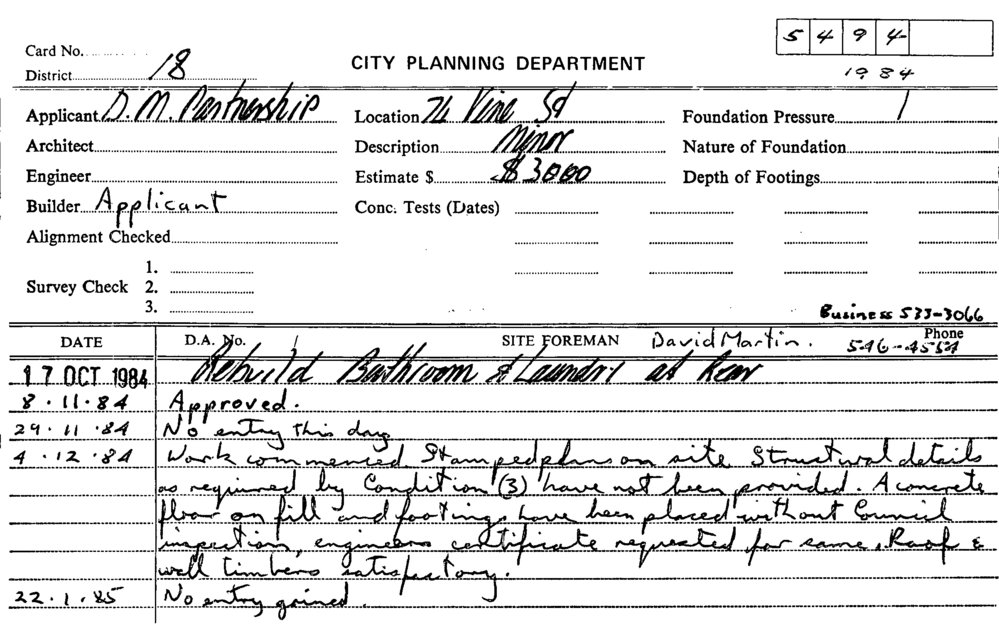 5 4 9 4
Card No.
District 18
CITY PLANNING DEPARTMENT
1984
Applicant D. M. Partnership
Location 74 Vine St
Foundation Pressure
Architect
Description Minor
Nature of Foundation
Engineer
Estimate $ $3000
Depth of Footings
Builder Applicant
Conc. Tests (Dates)
Alignment Checked
1.
Survey Check 2.
3.
Business 533-3066
DATE
D.A. No.
SITE FOREMAN David Martin.
Phone
546-4554
17 OCT 1984 Rebuild Bathroom & Laundry at Rear
8.11.84 Approved.
29.11.84 No entry this day
4.12.84 Work commenced Stamped plans on site. Structural details
as required by Condition (3) have not been provided. A concrete
floor on fill and footings have been placed without Council
inspection, engineers certificate requested for same. Roof &
wall timbers satisfactory.
22.1.85 No entry gained.